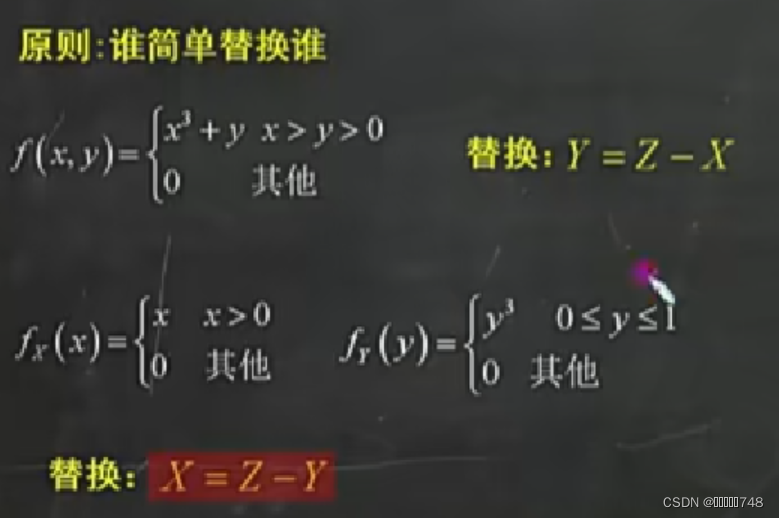 原则:谁简单替换谁
f(x,y)={x³+y x>y>0
0 其他
替换: Y=Z-X
f_X(x)={x x>0
0 其他
f_Y(y)={y³ 0≤y≤1
0 其他
替换: X=Z-Y
CSDN @▯▯▯▯▯748